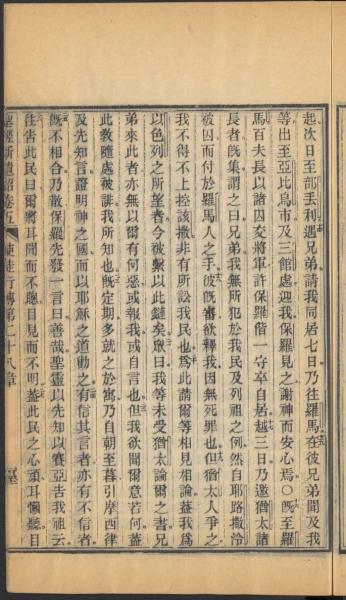 起次日至部丢利遇兄弟請我同居七日乃往羅馬在彼兄弟聞及我
等出至亞比烏市及三館處迎我保羅見之謝神而安心焉○旣至羅
馬百夫長以諸囚交將軍許保羅偕一守卒自居越三日乃邀猶太諸
長者旣集謂之曰兄弟我無所犯於我民及列祖之例然自耶路撒冷
被囚而付於羅馬人之手彼旣審欲釋我因無死罪也但猶太人爭之
我不得不上控該撒非有所訟我民也爲此請爾等相見相論蓋我爲
以色列之所望者今被繫以此鏈矣眾曰我等未受猶太論爾之書兄
弟來此者亦無以爾有何惡或報我或自言也但我欲聞爾意若何蓋
此敎隨處被誹我所知也旣定期多就之於寓乃自朝至暮引摩西律
及先知言證明神之國而以耶穌之道勸之有信其言者亦有不信者
旣不相合乃散保羅先發一言曰善哉聖靈以先知以賽亞吿我祖云
往吿此民曰爾將耳聞而不聰目見而不明蓋此民之心頑耳懶聽目
聖經新遺詔卷五 使徒行傳第二十八章